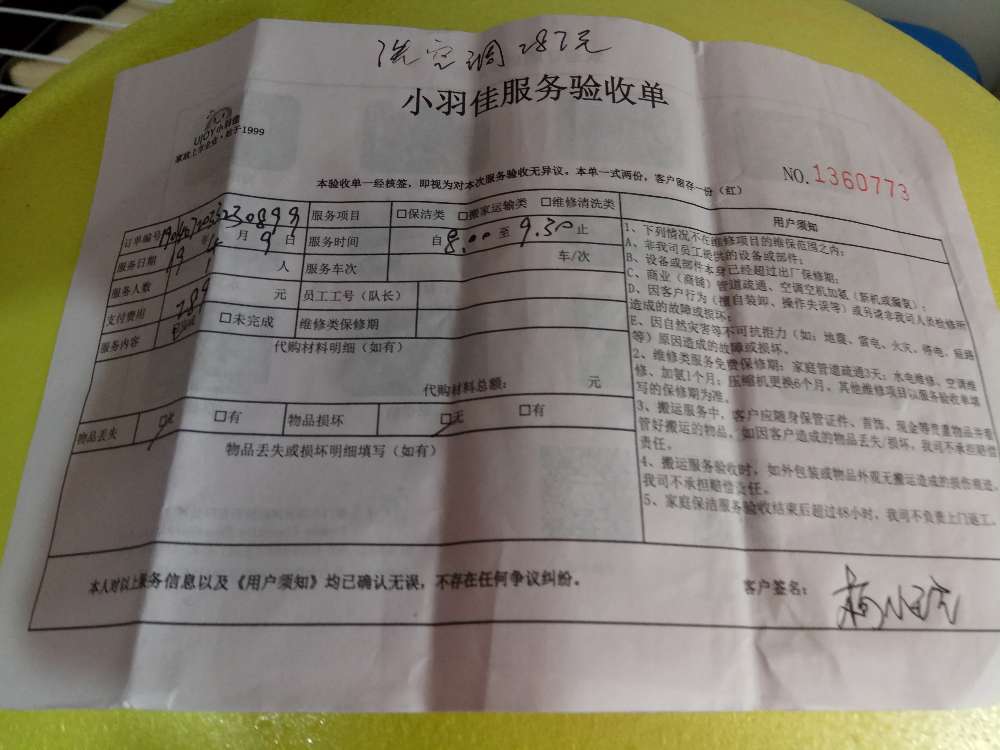 洗空调287元
小羽佳服务验收单
UJOY小羽佳
家政上市企业·始于1999
本验收单一经核签，即视为对本次服务验收无异议。本单一式两份，客户留存一份（红）
NO.1360773
订单编号 服务项目 □保洁类 □搬家运输类 □维修清洗类 用户须知
服务日期 19年4月9日 服务时间 自8:00至9:30止
服务人数 1人 服务车次 车/次
支付费用 元 员工工号（队长）
服务内容 □未完成 维修类保修期
代购材料明细（如有）
代购材料总额： 元
物品丢失 □无 □有 物品损坏 □无 □有
物品丢失或损坏明细填写（如有）
1、下列情况不在维修项目的维保范围之内：
A、非我司员工提供的设备或部件；
B、设备或部件本身已经超过出厂保修期；
C、商业（商铺）管道疏通、空调空机加氨（新机或漏氨）。
D、因客户行为（擅自装卸、操作失误等）或另请非我司人员检修所
造成的故障或损坏；
E、因自然灾害等不可抗拒力（如：地震、雷电、火灾、停电、短路
等）原因造成的故障或损坏。
2、维修类服务免费保修期：家庭管道疏通3天；水电维修、空调维
修、加氨1个月；压缩机更换6个月，其他维修项目以服务验收单填
写的保修期为准。
3、搬运服务中，客户应随身保管证件、首饰、现金等贵重物品并看
管好搬运的物品，如因客户造成的物品丢失/损坏，我司不承担赔偿
责任。
4、搬运服务验收时，如外包装或物品外观无搬运造成的损伤痕迹，
我司不承担赔偿责任。
5、家庭保洁服务验收结束后超过48小时，我司不负责上门返工。
本人对以上服务信息以及《用户须知》均已确认无误，不存在任何争议纠纷。
客户签名：